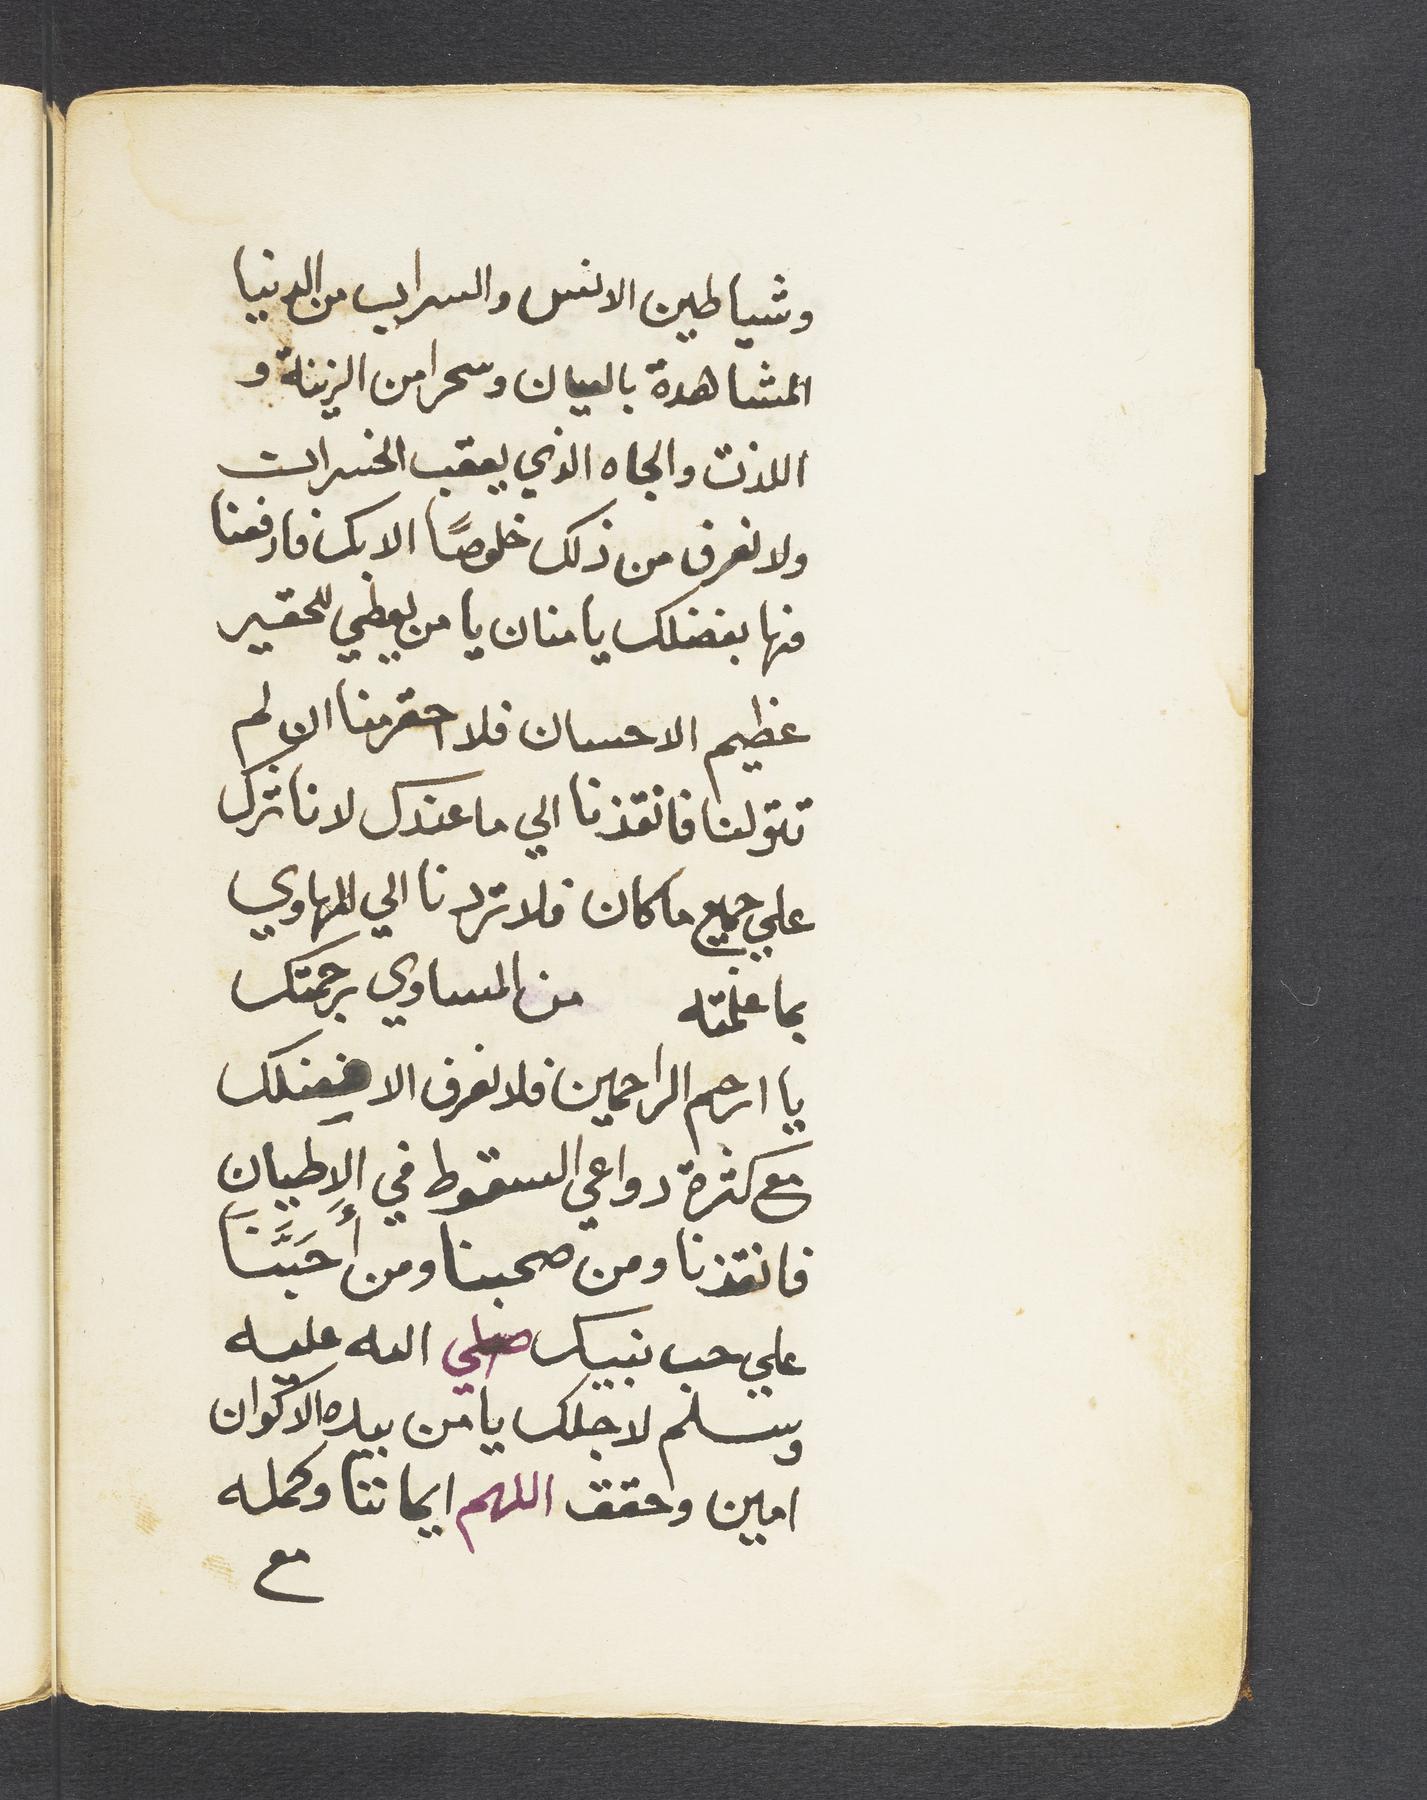 وشياطين الانس والسراب من الدنيا
المشاهدة بالعيان وسحرا من الزينة و
اللذت والجاه الذي يعقب الخسرات
ولا نعرف من ذلك خلوصًا الا بك فادفعنا
فنها بفضلك يا منان يا من يعطي للحقير
عظيم الاحسان فلا احقر منا ان لم
تتولنا فانقذنا الي ما عندك لانا نترك
علي جميع ما كان فلا تردنا الي المهاوي
بما علمته من المساوي برحمتك
يا ارحم الراحمين فلا نعرف الا فضلك
مع كثرة دواعي السقوط في الإطيان
فانقذنا ومن صحبنا ومن أَحَبَّنَا
علي حب نبيك صلي الله عليه
وسلم لاجلك يا من بيده الاكوان
امين وحقق اللهم ايماننا وكمله
مع